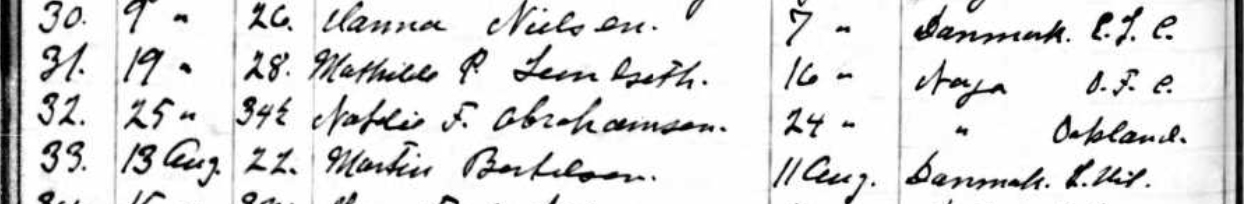 30. 9 " 26. Hanna Nielsen. 7 " Danmark. C.
31. 19 " 28. Mathilde P. 16 " Noga O. F. C.
32. 25 " 34½ F. Abrahamsen. 24 " " Oakland.
33. 13 Aug. 22. Martin Bertelsen. 11 Aug. Danmark.